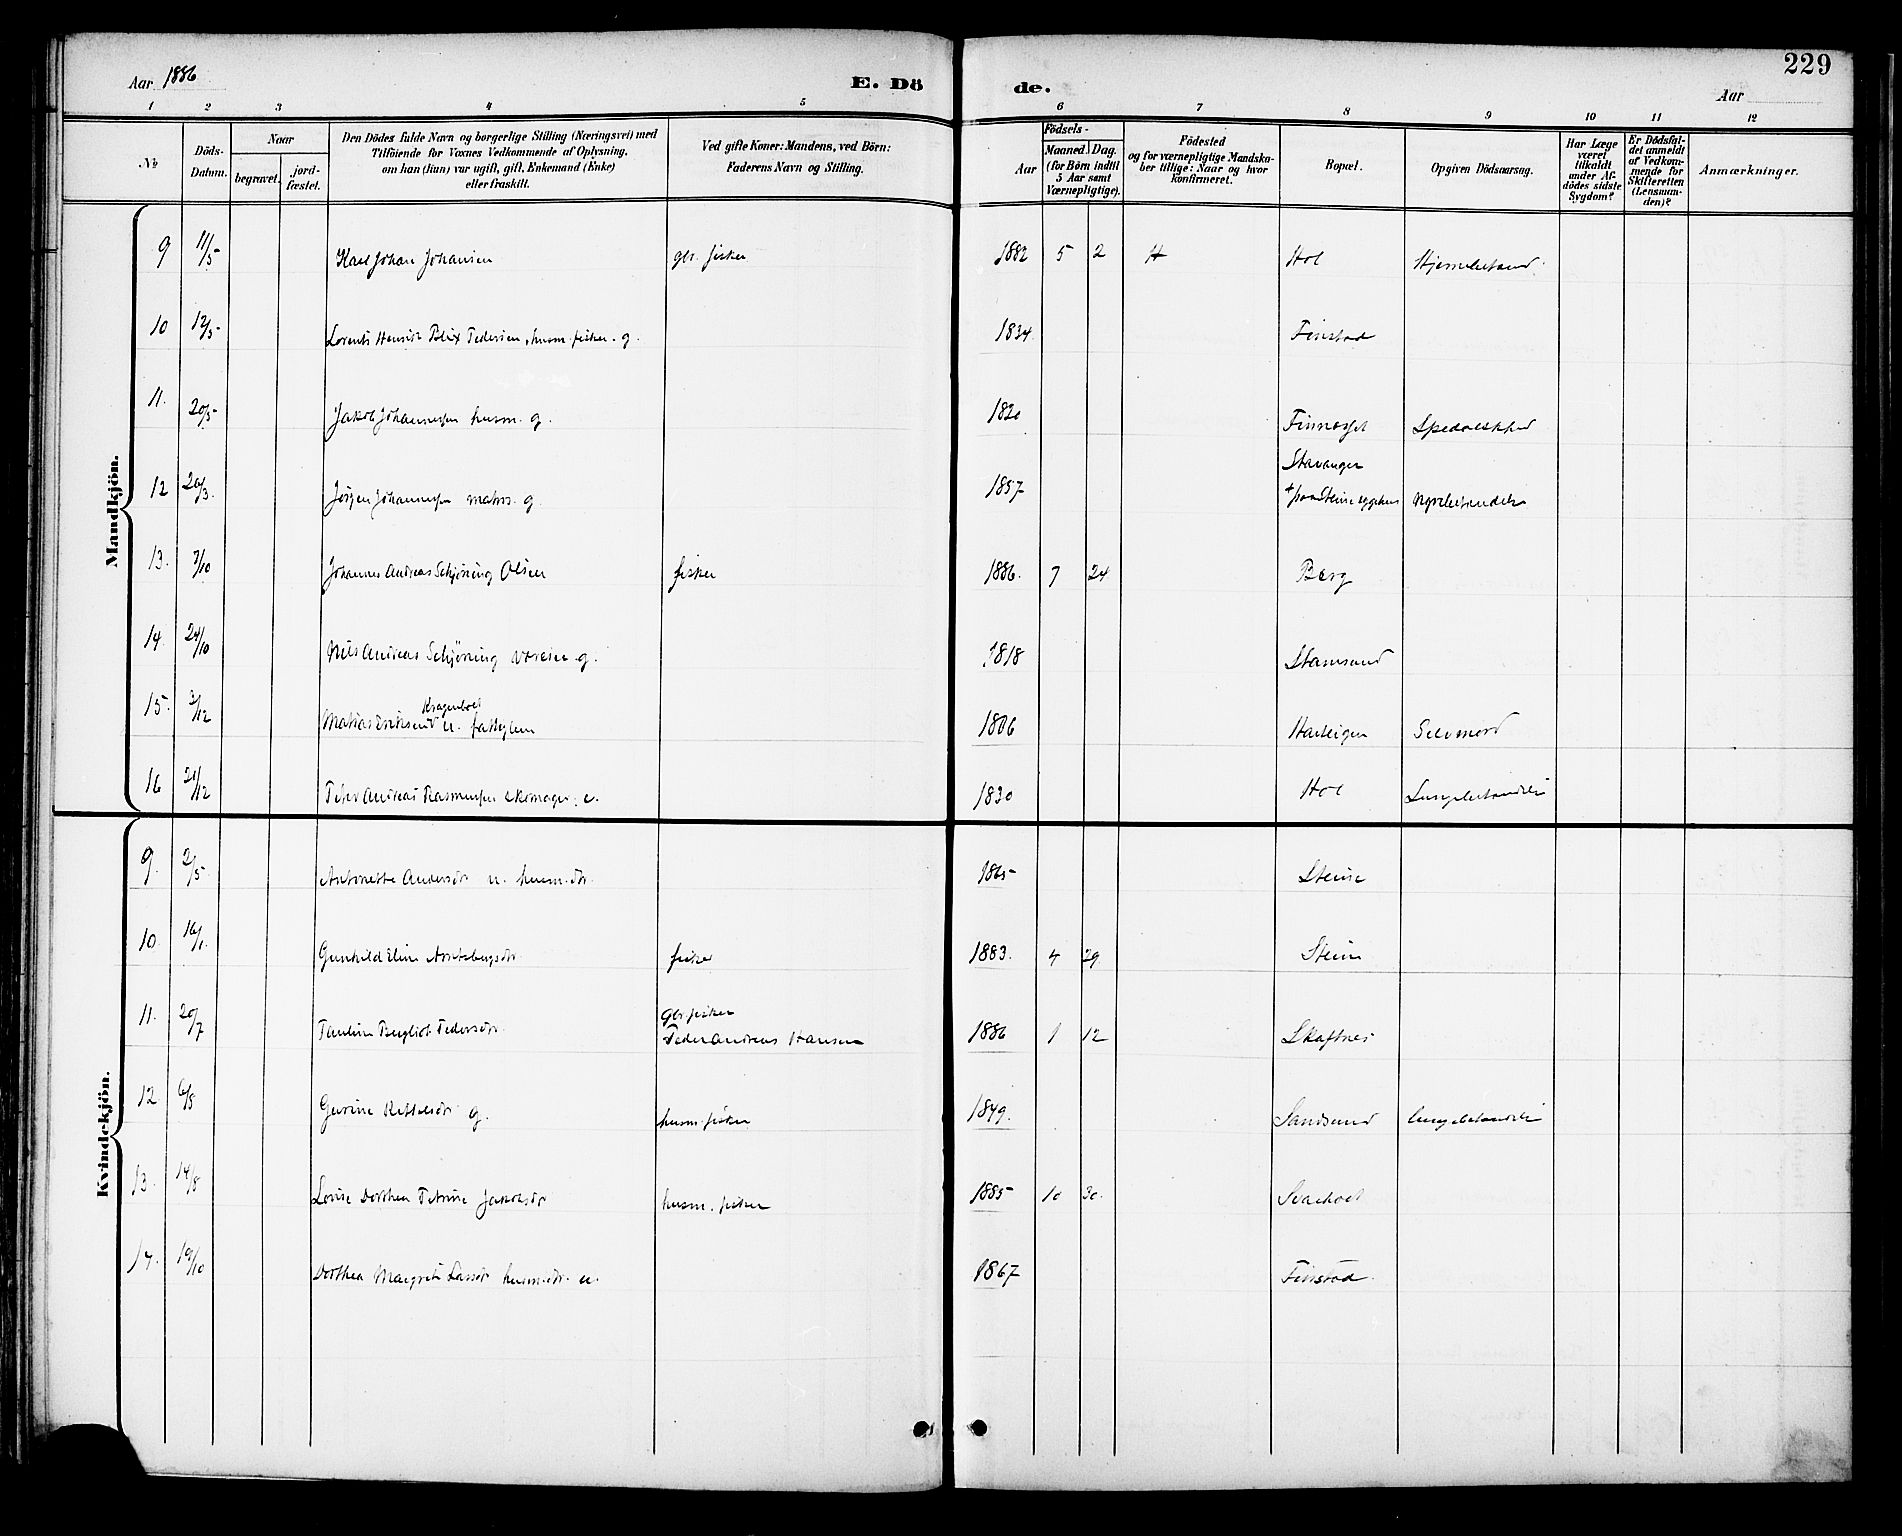 229
Aar 1886
E. Dö
de.
Aar
1 2 3 4 5 6 7 8 9 10 11 12
№
Döds-
Datum.
Naar
begravet.
jord-
fæstet.
Den Dödes fulde Navn og borgerlige Stilling (Næringsvei) med
Tilföiende for Voxnes Vedkommende af Oplysning.
om han (hun) var ugift, gift, Enkemand (Enke)
eller fraskilt.
Ved gifte Koner: Mandens, ved Börn:
Faderens Navn og Stilling.
Födsels-
Aar
Maaned. Dag.
(for Börn indtil
5 Aar samt
Værnepligtige).
Födested
og for værnepligtige Mandska-
ber tillige: Naar og hvor
konfirmeret.
Bopæl.
Opgiven Dödsaarsag.
Har Læge
været
tilkaldt
under Af-
dödes sidste
Sygdom?
Er Dödsfal-
det anmeldt
af Vedkom-
mende for
Skifteretten
(Lensman-
den)?
Anmærkninger.
Mandkjön.
9 11/5 Karl Johan Johansen gbr. fisker 1882 5 2 H Hol Hjernebetænd.
10 12/5 Lorents Henrik Blix Pedersen, husm. fisker. g. 1834 Finstad
11. 20/5 Jakob Johannessen husm. g. 1820 Finnæsset Spedalskhed
Stavanger
12 20/3. Jørgen Johannessen matros. g. 1857 + paa Steine sygehus Nyrebetændelse
13. 7/10 Johannes Andreas Schjøning Olsen fisker 1886. 7 24 Berg
14. 24/10 Nils Andreas Schjøning væreier g. 1818 Stamsund
15. 3/12 Matias Eriksen u. fattiglem 1806 Selvmord
16 21/12 Peter Andreas Rasmussen skomager. e. 1830 Hol Lungebetændelse
Kvindekjön.
9. 2/5 Antonette Andersdr u. husm.dtr. 1865 Steine
10. 16/1. Gunhild Eline fisker 1883. 4 29 Steine
gbr. fisker
11. 20/7 Pauline Bergliot Pedersdtr. Peder Andreas Hansen 1886 1 12 Skaftnes
12. 6/8 Gurine Kittelsdr g. husm. fisker 1849. Sandsund lungebetændelse
13. 14/8 Lovise Dorthea Petrine Jakobsdr husm. fisker 1885 10 30. Svarholt
14. 19/10 Dorthea Margrete Larsdr husm.dr. u. 1867 Finstad.